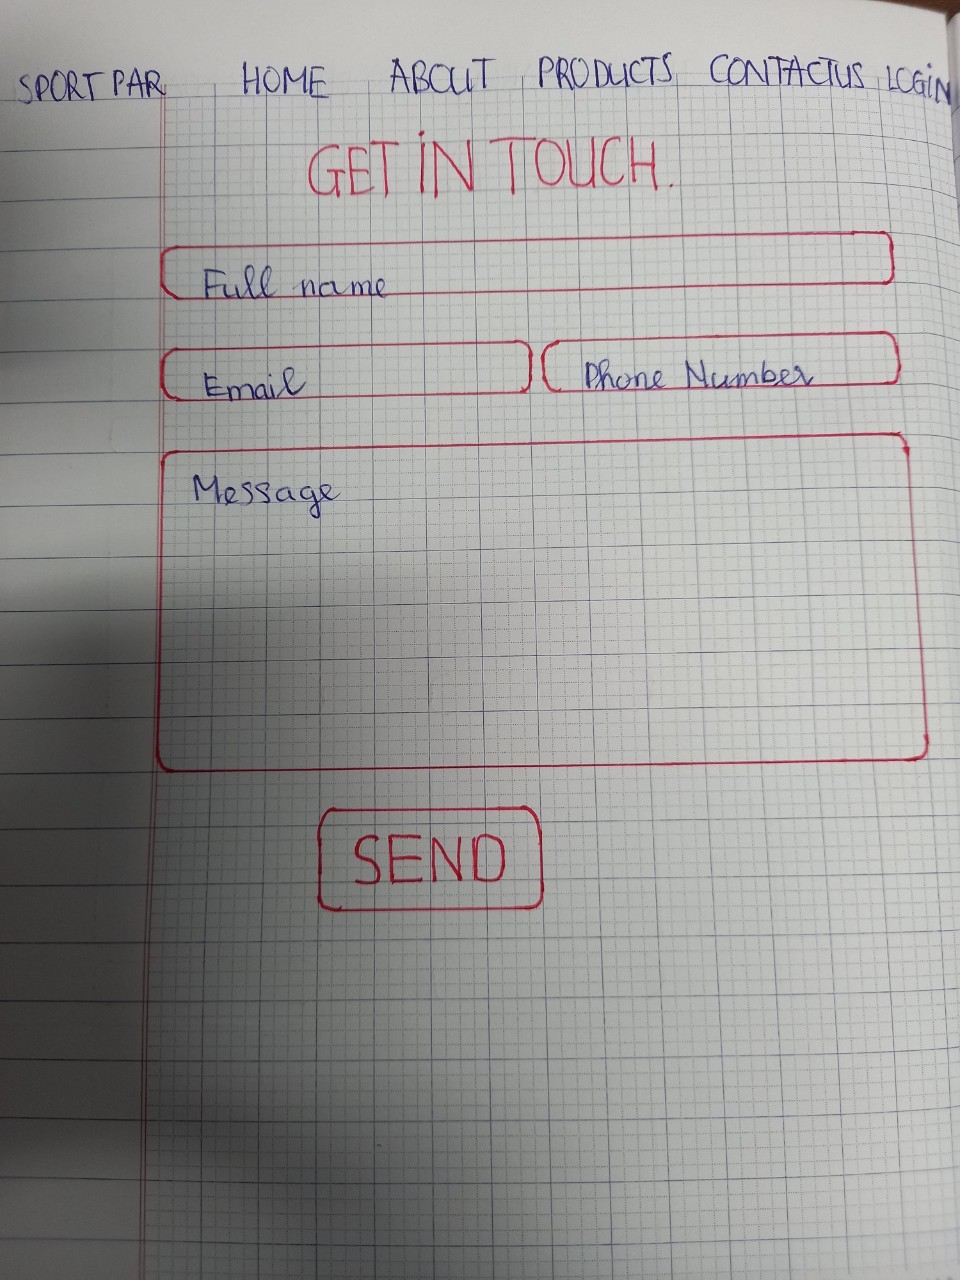 SPORT PAR HOME ABOUT PRODUCTS CONTACTUS LOGIN
GET IN TOUCH.
Full name
Email Phone Number
Message
SEND